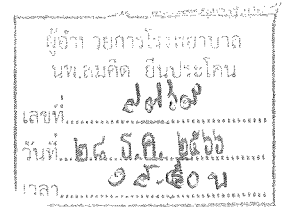 ผู้อำนวยการโรงพยาบาล
นพ.สมคิด ยืนประโคน
เลขที่
วันที่ ๒๘ ธ.ค. ๒๕๖๖
เวลา